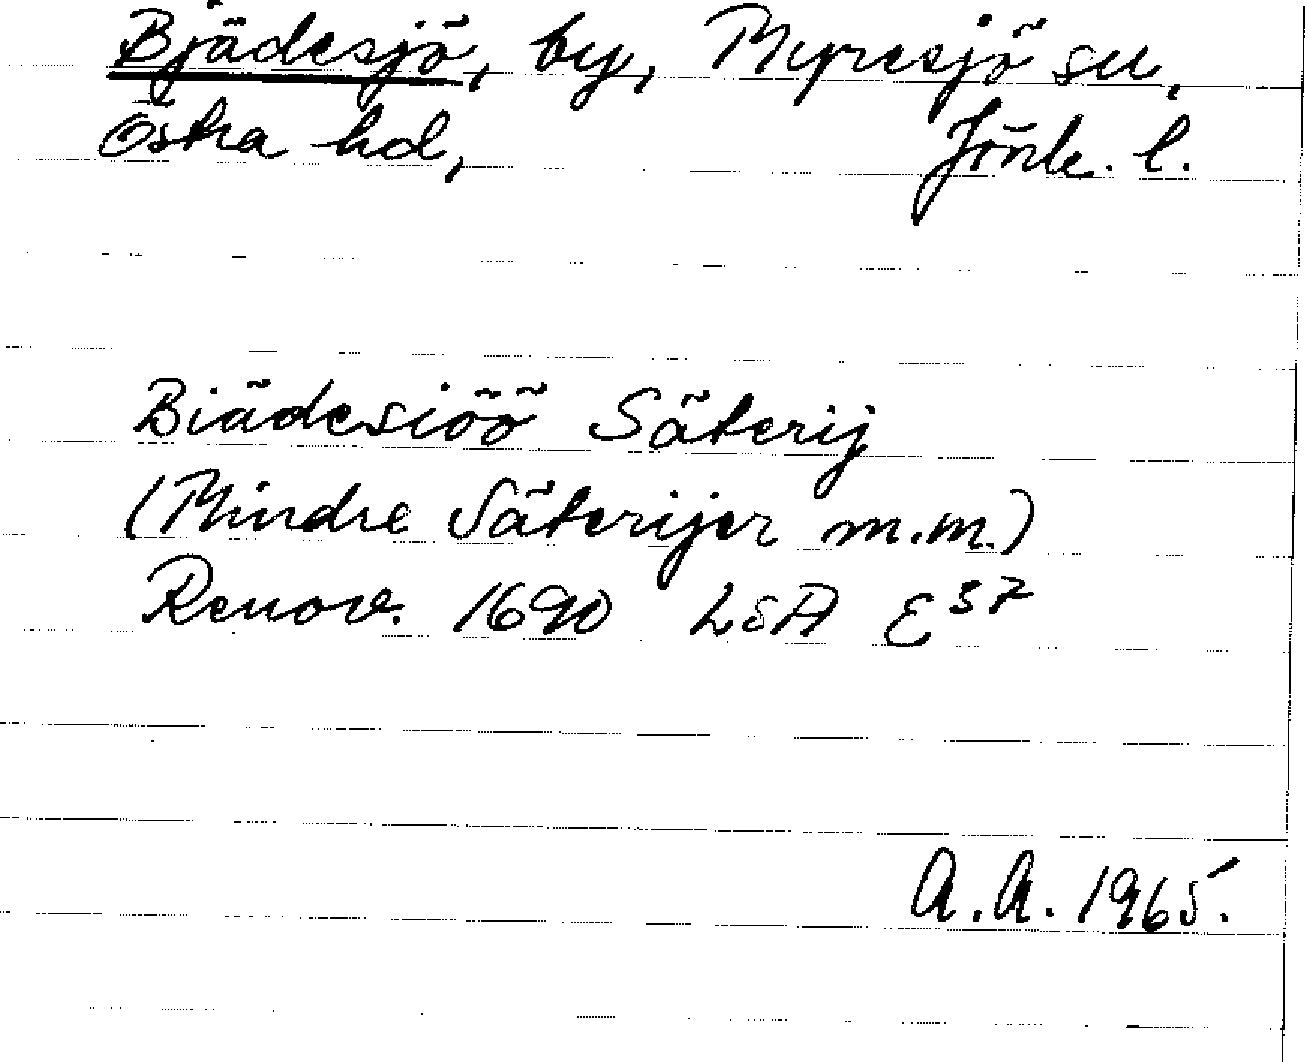 Bjädesjö, by, Myresjö sn,
Östra hd, Jönk. l.
Biädesiöö Säterij
(Mindre Säterijer m.m.)
Renov. 1690 LSA E 37
A.A. 1965.